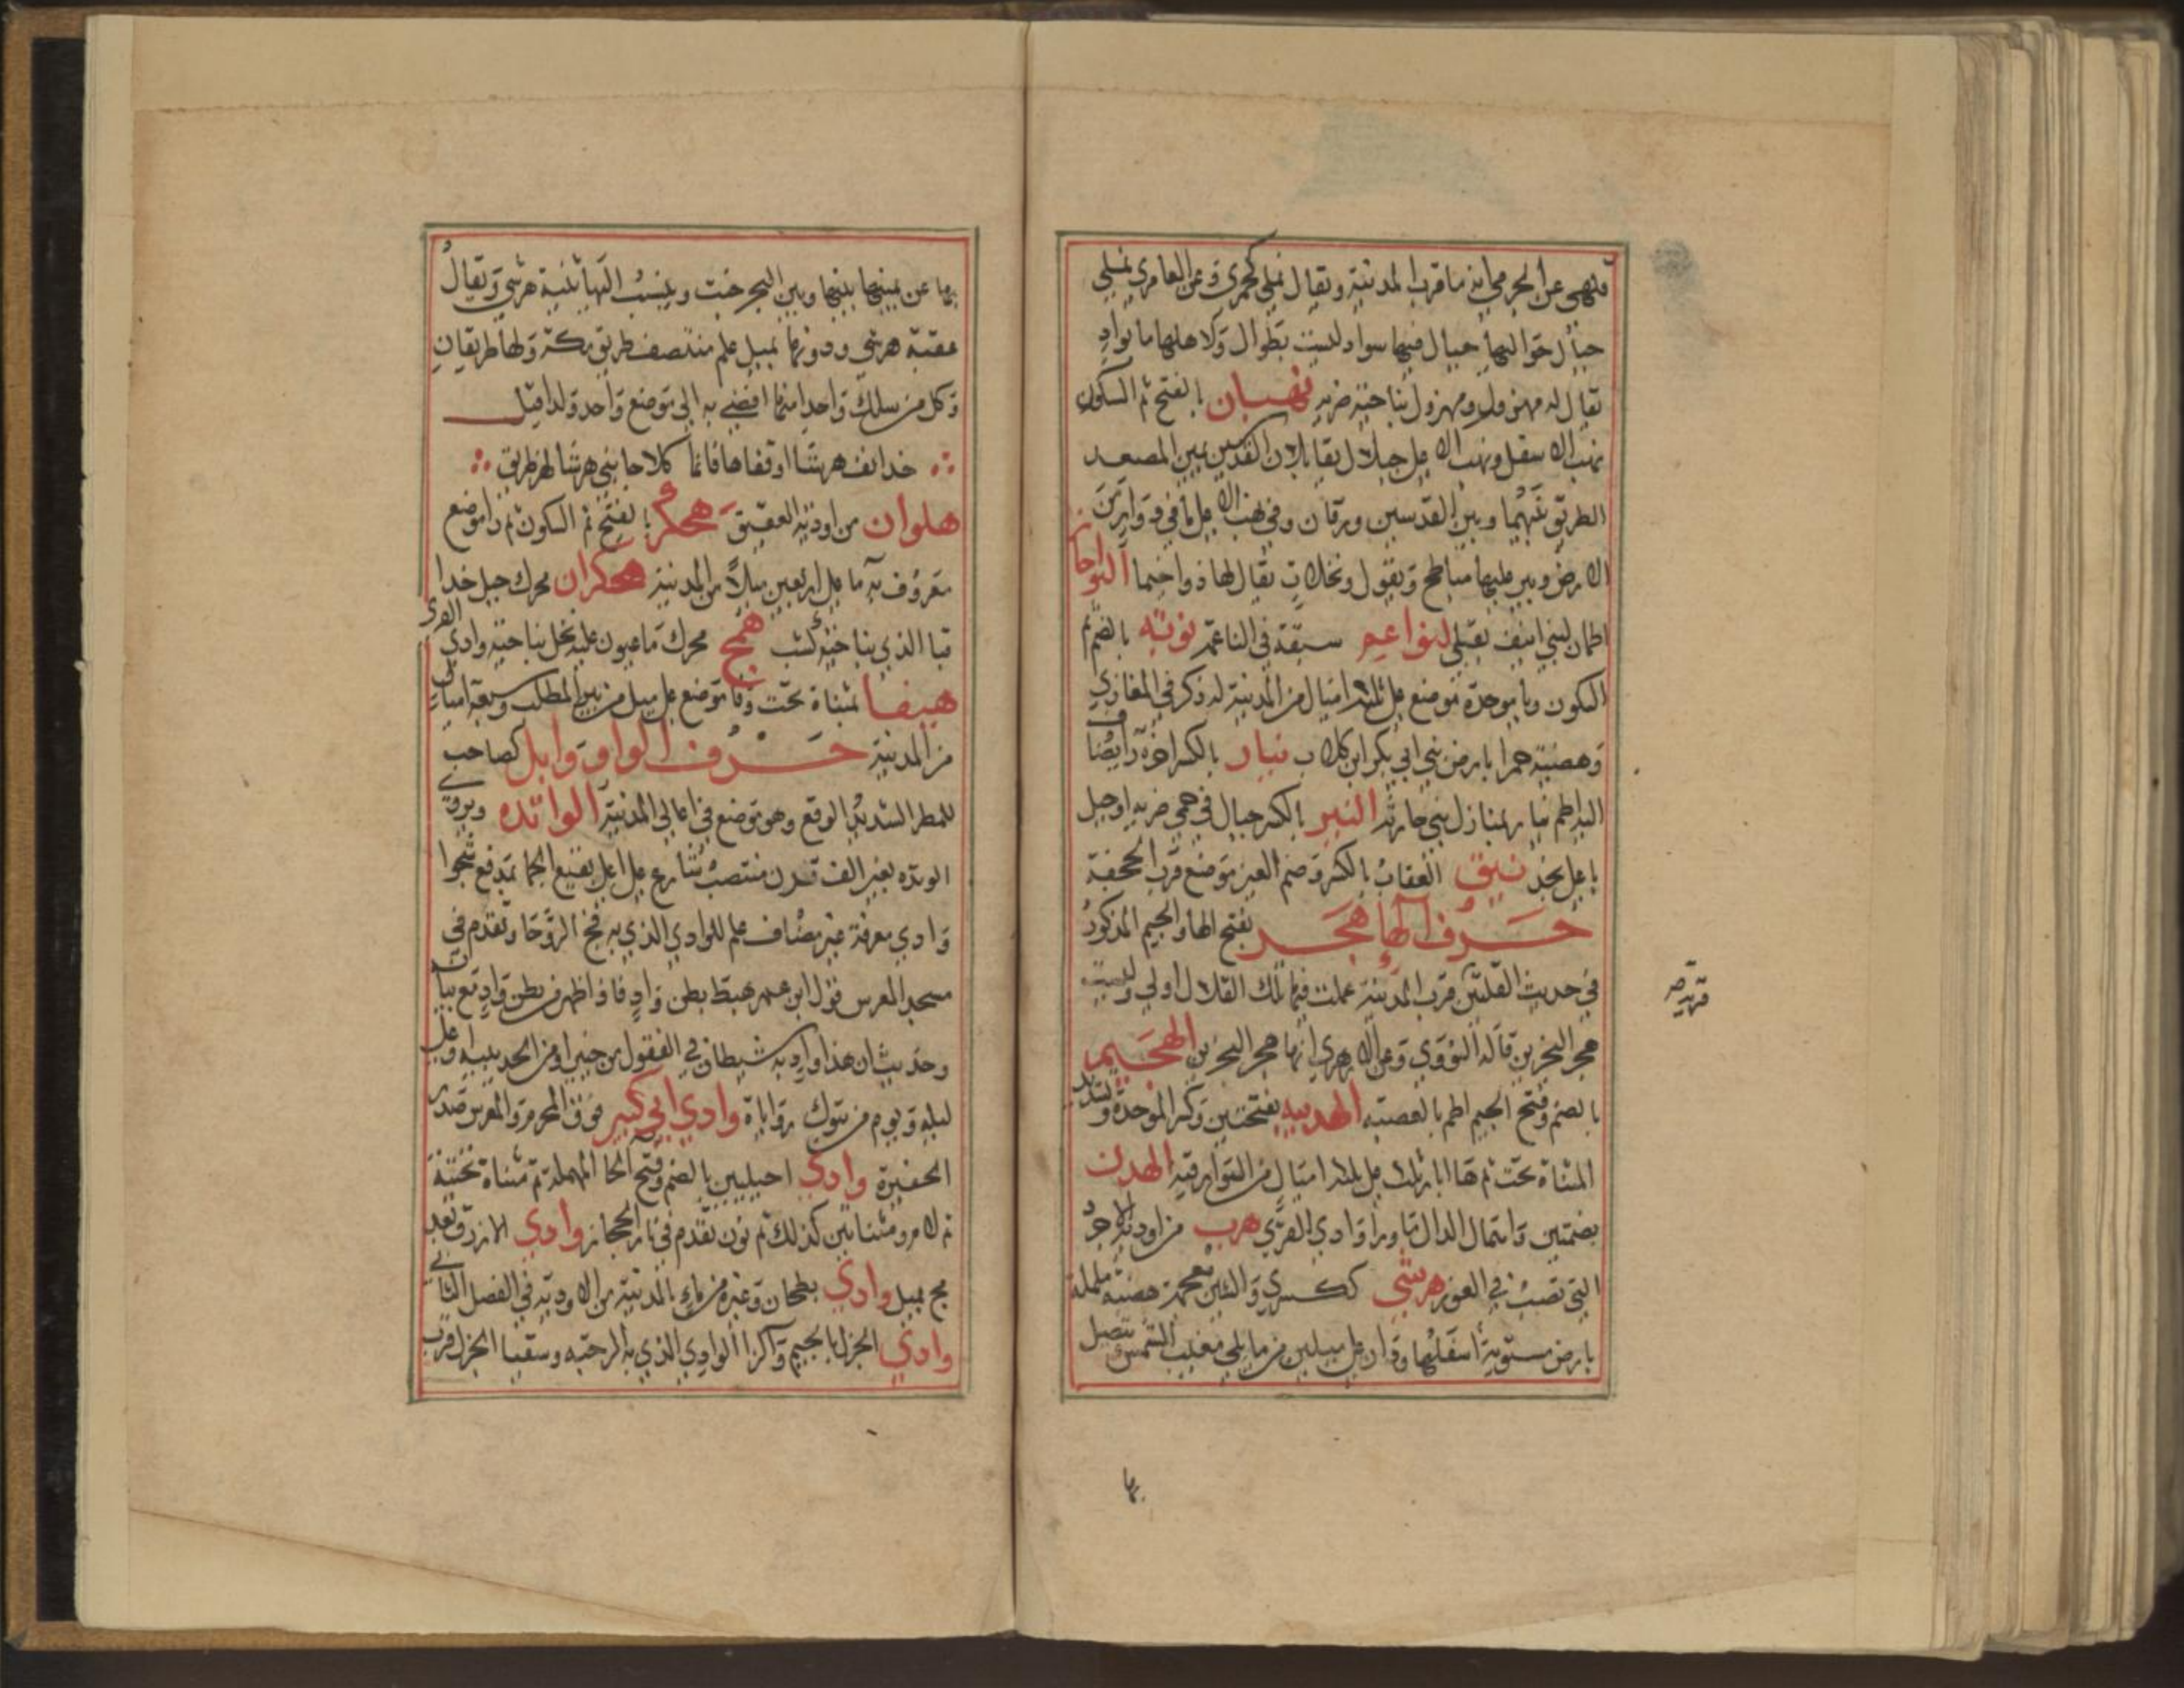 فنهي عن الجرمي انه ما قرب المدينة ويقال نملي كجمزى وعن العامري نملي
جبال حواليها جبال فيها سواد ليست بطوال ولاهلها ما بواد
يقال له مهزول ومهزول بناحية ضريه نهبان بالفتح ثم السكون
نهب الاسفل ونهب الاعلى جبلان يقابلان القدسين يمين المصعد
الطريق بينهما وبين القدسين ورقان وفي نهب الاعلى ما في دوار من
الارض وبير عليها مباطخ وبقول ونخلات يقال لها ذو اخيما النواحان
اطمان لبني انيف بقبا النواعم سبقة في الناعمة نوبه بالضم ثم
السكون وبا موحدة موضع على ثلثة اميال من المدينة له ذكر في المغازي
وهضبة حمرا بارض بني ابي بكر ابن كلاب نيار بالكسر اخره را يضاف
اليه اطم نيار بمنازل بني حارثه النير بالكسر جبال في حمى ضريه او جبل
باعلى نجد نيق العقاب بالكسر وضم العين موضع قرب الجحفة
حرف الها هجر بفتح الها والجيم المذكور
في حديث القلتين قرب المدينة عملت فيها تلك القلال اولا وليست
هجر البحرين قاله النووي وعن الازهري انها هجر البحرين الهجيم
بالضم وفتح الجيم اطم بالعصبة الهدبيه بفتحتين وكسر الموحدة وتشديد
المثناة تحت ثم ها ابار ثلث على ثلثة اميال من السوارقيه الهدن
بضمتين واهمال الدال ما ورا وادي القرى هرب من اودية الاجرد
التي تصب في الغور هرشي كسكرى والشين معجمة هضبة ململمة
بارض مستوية اسفلها ودان على ميلين من ما يلي مغيب الشمس يتصل
قرية صر
بها
بها عن يمينها بينها وبين البحر خبت وينسب اليها ثنية هرشي ويقال
عقبة هرشي ودونها بميل علم منتصف طريق مكة ولها طريقان
وكل من سلك واحدا منها افضى به الى موضع واحد ولذا قيل
خدا انف هرشا او قفاها فانما كلا جانبي هرشا لهن طريق
هلوان من اودية العقيق هكر بالفتح ثم السكون ثم را موضع
معروف به ما على اربعين ميلا من المدينة هكران محرك جبل حذا
قبا الذي بناحية كشب همج محرك ما عيون عليه نخل بناحية وادي القرى
هيفا بمثناة تحت وفا موضع على ميل من بير المطلب وسبعة اميال
من المدينة حرف الواو وابل كصاحب
للمطر الشديد الوقع وهو موضع في اعالي المدينة الواتده ويروى
الوتده بغير الف قرن منتصب شارع على اعلى بقيع الجما بمدفع شجوا
وادي معرفة غير مضاف علم للوادي الذي به فج الروحا وتقدم في
مسجد المعرس قول ابن عمر هبط بطن واد فاذا ظهر من بطن واد مع بيان
وحديث ان هذا واد به شيطان في القفول من خيبر او من الحديبيه وعلى
ليلة ويوم من تبوك رواياة وادي ابي كبير فوق المحرم والمعرس صدر
الحفيرة وادي احيليين بالضم وفتح الحا المهملة ثم مثناة تحتية
ثم لام ومثناتين كذلك ثم نون تقدم في نار الحجاز وادي الازرق بعد
مج بميل وادي بطحان وغيره من باب المدينة من الاودية في الفصل الثاني
وادي الجزل بالجيم والزا الوادي الذي به الرحبه وسقيا الجزل قرب